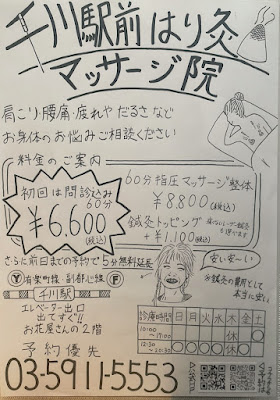 千川駅前はり灸
マッサージ院
肩こり・腰痛・疲れや だるさ など
お身体のお悩みご相談ください
料金のご案内
初回は問診込み
60分
¥6,600
(税込)
60分 指圧マッサージ整体
¥8800(税込)
鍼灸トッピング
+¥1,100(税込)
さらに前日までの予約で5分無料延長
Y 有楽町線・副都心線 F
千川駅
エレベーター出口
出てすぐ!!
お花屋さんの2階
安い安い〜
予約優先
03-5911-5553
診療時間 日 月 火 水 木 金 土
10:00
〜17:00
休